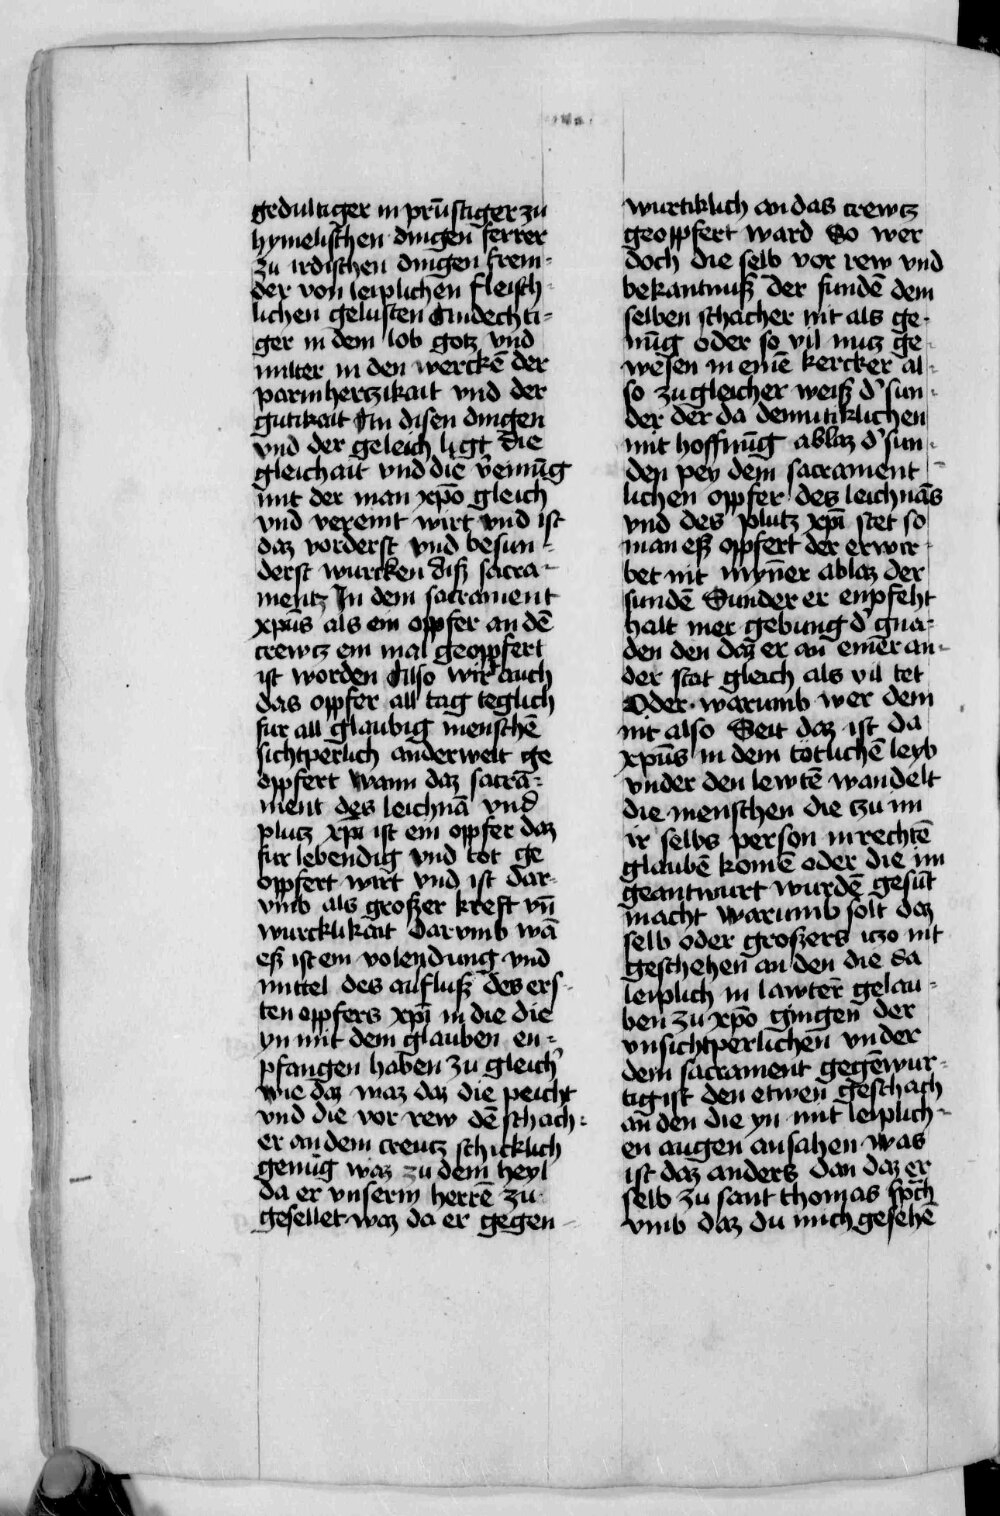 gedultiger in prūstiger zu
hymelischen dingen ferrer
zu irdischen dingen frem-
der von leiplichen fleisch-
lichen gelusten Andechti-
ger in dem lob gotz vnd
milter in den werckē der
parmhertzikait vnd der
gutikait An disen dingen
vnd der geleich ligt die
gleichait vnd die v̄einūg
mit der man xp̄o gleich
vnd vereint wirt vnd ist
daz vorderst vnd besun-
derst wurcken diß sacra-
mentz In dem sacrament
xpūs als ein opfer an dē
crewtz ein mal geopfert
ist worden Also wir auch
das opfer all tag teglich
fur all glaubig menschē
sichtperlich anderweit ge
opfert Wann daz sacrā-
ment des leichnā vnd
plutz xp̄i ist ein opfer daz
fur lebendig vnd tot ge
opfert wirt vnd ist dar-
vmb als großer kreft vn̄
wurcklikait Darvmb wā
eß ist ein volendung vnd
mittel des aufluß des ers-
ten opfers xp̄i in die die
yn mit dem glauben en-
pfangen haben zu gleich'
wie daz waz daz die peicht
vnd die vor rew dē schach-
er an dem creutz schicklich
genūg waz zu dem heyl
da er vnserm herrē zu
gesellet waz da er gegen-
wurtiklich an das crewtz
geopfert ward So wer
doch die selb vor rew vnd
bekantnuß der sundē dem
selben schacher nit als ge-
nūg oder so vil nutz ge-
wesen in einē kercker al-
so zu gleicher weiß d' sun-
der der da demutiklichen
mit hoffnūg ablaz d' sun-
den pey dem sacrament-
lichen opfer des leichnās
vnd des plutz xp̄i stet so
man eß opfert der erwir-
bet nit mynēr ablaz der
sundē Sunder er enpfeht
halt mer gebung d' gna-
den den daz er an einēr an-
der stat gleich als vil tet
Oder warumb wer dem
nit also Seit daz ist da
xpūs in dem totlichē leyb
vnder den lewtē wandelt
die menschen die tzu im
ir selbs person in rechtē
glaubē komē oder die im
geantwurt wurdē gesūt
macht warumb solt daz
selb oder großers itzo nit
geschehen an den die da
leiplich in lawtēr gelau-
ben zu xp̄o gingen der
vnsichtperlichen vnder
dem sacrament gegēwur-
tig ist den etwen geschach
an den die yn mit leiplich-
en augen ansahen was
ist daz anders dan daz er
selb zu sant thomas sp̄ch
vmb daz du mich gesehē